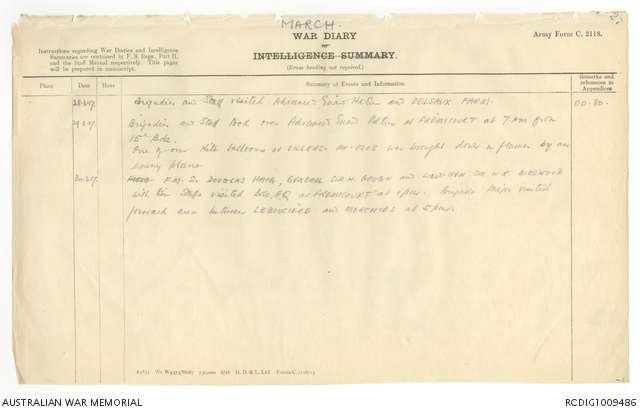 MARCH.
WAR DIARY
or
INTELLIGENCE SUMMARY.
(Erase heading not required.)
Army Form C. 2118.
Instructions regarding War Diaries and Intelligence
Summaries are contained in F. S. Regs., Part II.
and the Staff Manual respectively. Title pages
will be prepared in manuscript.
Place
Date
Hour
Summary of Events and Information
Remarks and
references to
Appendices
28.3.17. Brigadier and Staff visited Advanced and DELSAUX FARM. OO.80.
29.3.17. Brigadier and Staff took over Advanced at FREMICOURT at 7 am from
15th Bde.
One of our Kite balloons at was brought down in flames by an
enemy plane
F.M. Sir DOUGLAS HAIG, GENERAL SIR H. GOUGH and SIR W.R. BIRDWOOD
with their Staffs visited Bde. HQ at FREMICOURT at Brigade Major visited
forward area between LEBUCQUIERE and MORCHIES at 5 pm.
AUSTRALIAN WAR MEMORIAL
RCDIG1009486